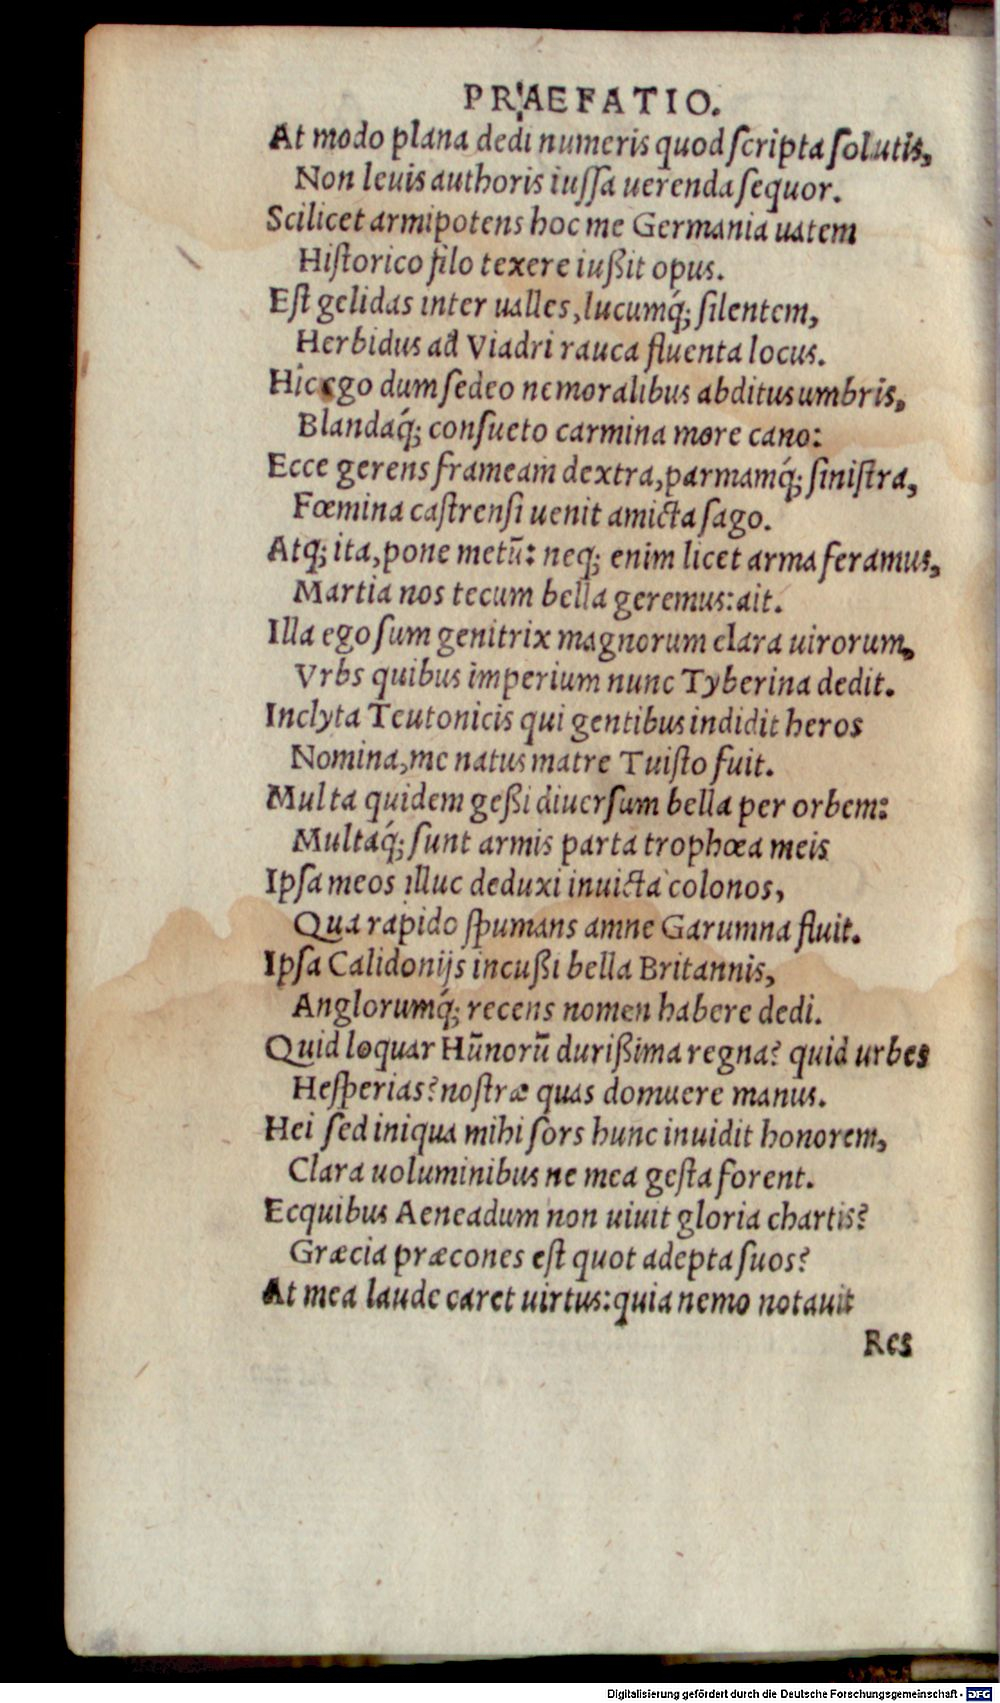 PRAEFATIO.
At modo plana dedi numeris quod ſcripta ſolutis,
Non leuis authoris iuſſa uerenda ſequor.
Scilicet armipotens hoc me Germania uatem
Hiſtorico filo texere iußit opus.
Eſt gelidas inter ualles, lucumq́; ſilentem,
Herbidus ad Viadri rauca fluenta locus.
Hic ego dum ſedeo nemoralibus abditus umbris,
Blandaq́; conſueto carmina more cano:
Ecce gerens frameam dextra, parmamq́; ſiniſtra,
Fœmina caſtrenſi uenit amicta ſago.
Atq; ita, pone metū: neq; enim licet arma feramus,
Martia nos tecum bella geremus: ait.
Illa ego ſum genitrix magnorum clara uirorum,
Vrbs quibus imperium nunc Tyberina dedit.
Inclyta Teutonicis qui gentibus indidit heros
Nomina, me natus matre Tuiſto fuit.
Multa quidem geßi diuerſum bella per orbem:
Multaq́; ſunt armis parta trophœa meis
Ipſa meos illuc deduxi inuicta colonos,
Qua rapido ſpumans amne Garumna fluit.
Ipſa Calidonijs incußi bella Britannis,
Anglorumq́; recens nomen habere dedi.
Quid loquar Hūnorū durißima regna? quid urbes
Heſperias? noſtræ quas domuere manus.
Hei ſed iniqua mihi ſors hunc inuidit honorem,
Clara uoluminibus ne mea geſta forent.
Ecquibus Aeneadum non uiuit gloria chartis?
Græcia præcones eſt quot adepta ſuos?
At mea laude caret uirtus: quia nemo notauit
Res
Digitalisierung gefördert durch die Deutsche Forschungsgemeinschaft - DFG